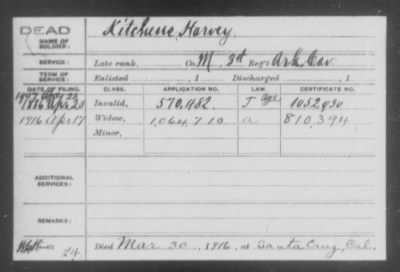 DEAD
NAME OF SOLDIER: Kitchens, Harvey.
SERVICE: Late rank, Co. M, 3d Reg't Ark. Cav.
TERM OF SERVICE: Enlisted , 1 Discharged , 1
DATE OF FILING. CLASS. APPLICATION NO. LAW. CERTIFICATE NO.
Invalid, 570,482. J 1052,930
1916 Apr 17 Widow, 1,064,710 a 810,394
Minor,
ADDITIONAL SERVICES:
REMARKS:
Died Mar 30, 1916, at Santa Cruz, Cal.